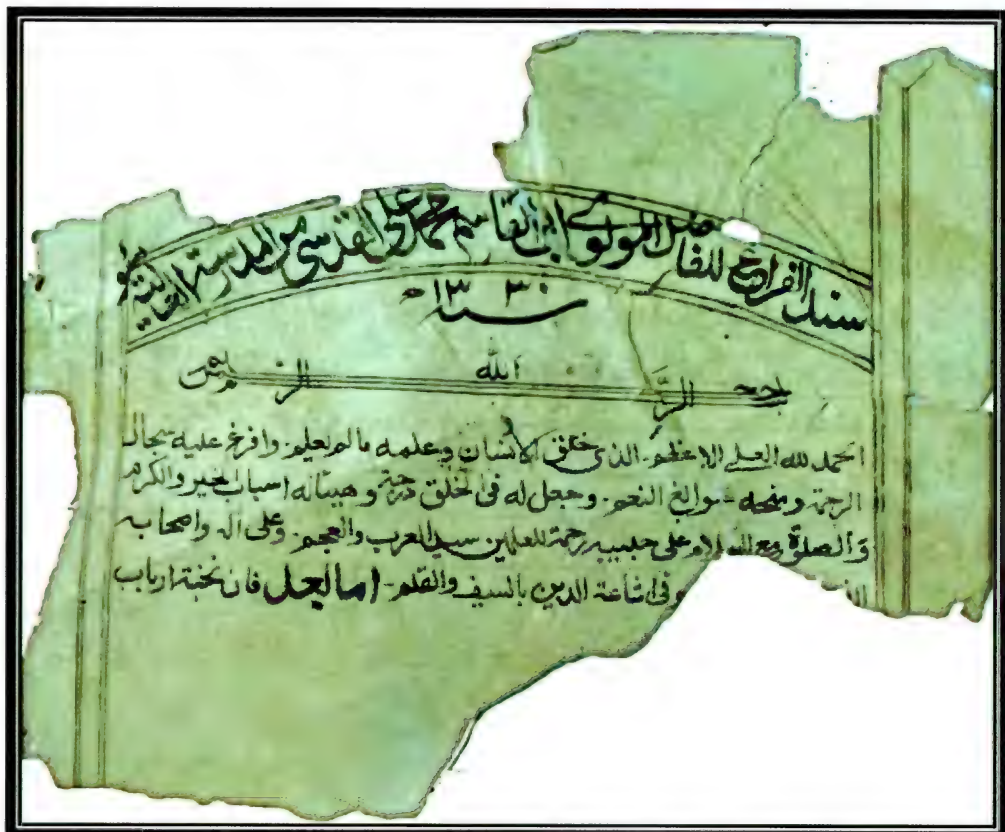 سند الفراغ للفاضل المولوي ابي القاسم محمد علي القدسي من المدرسة
سنه ١٣٣٠ھ
الله الر
الحمد لله العلي الاعظم۔ الذی خلق الانسان وعلمه ما لم يعلم۔ وافرغ عليه سجال
الرحمة ومنحه سوابغ النعم۔ وجعل له فی الخلق درجة وهيئاله اسباب الخير والكرم
والصلوة مع السلام علی حبيبه رحمة للعلمين سيد العرب والعجم۔ وعلی اله واصحابه
فی اشاعة الدين بالسيف والقلم۔ اما بعد فان نخبة ارباب